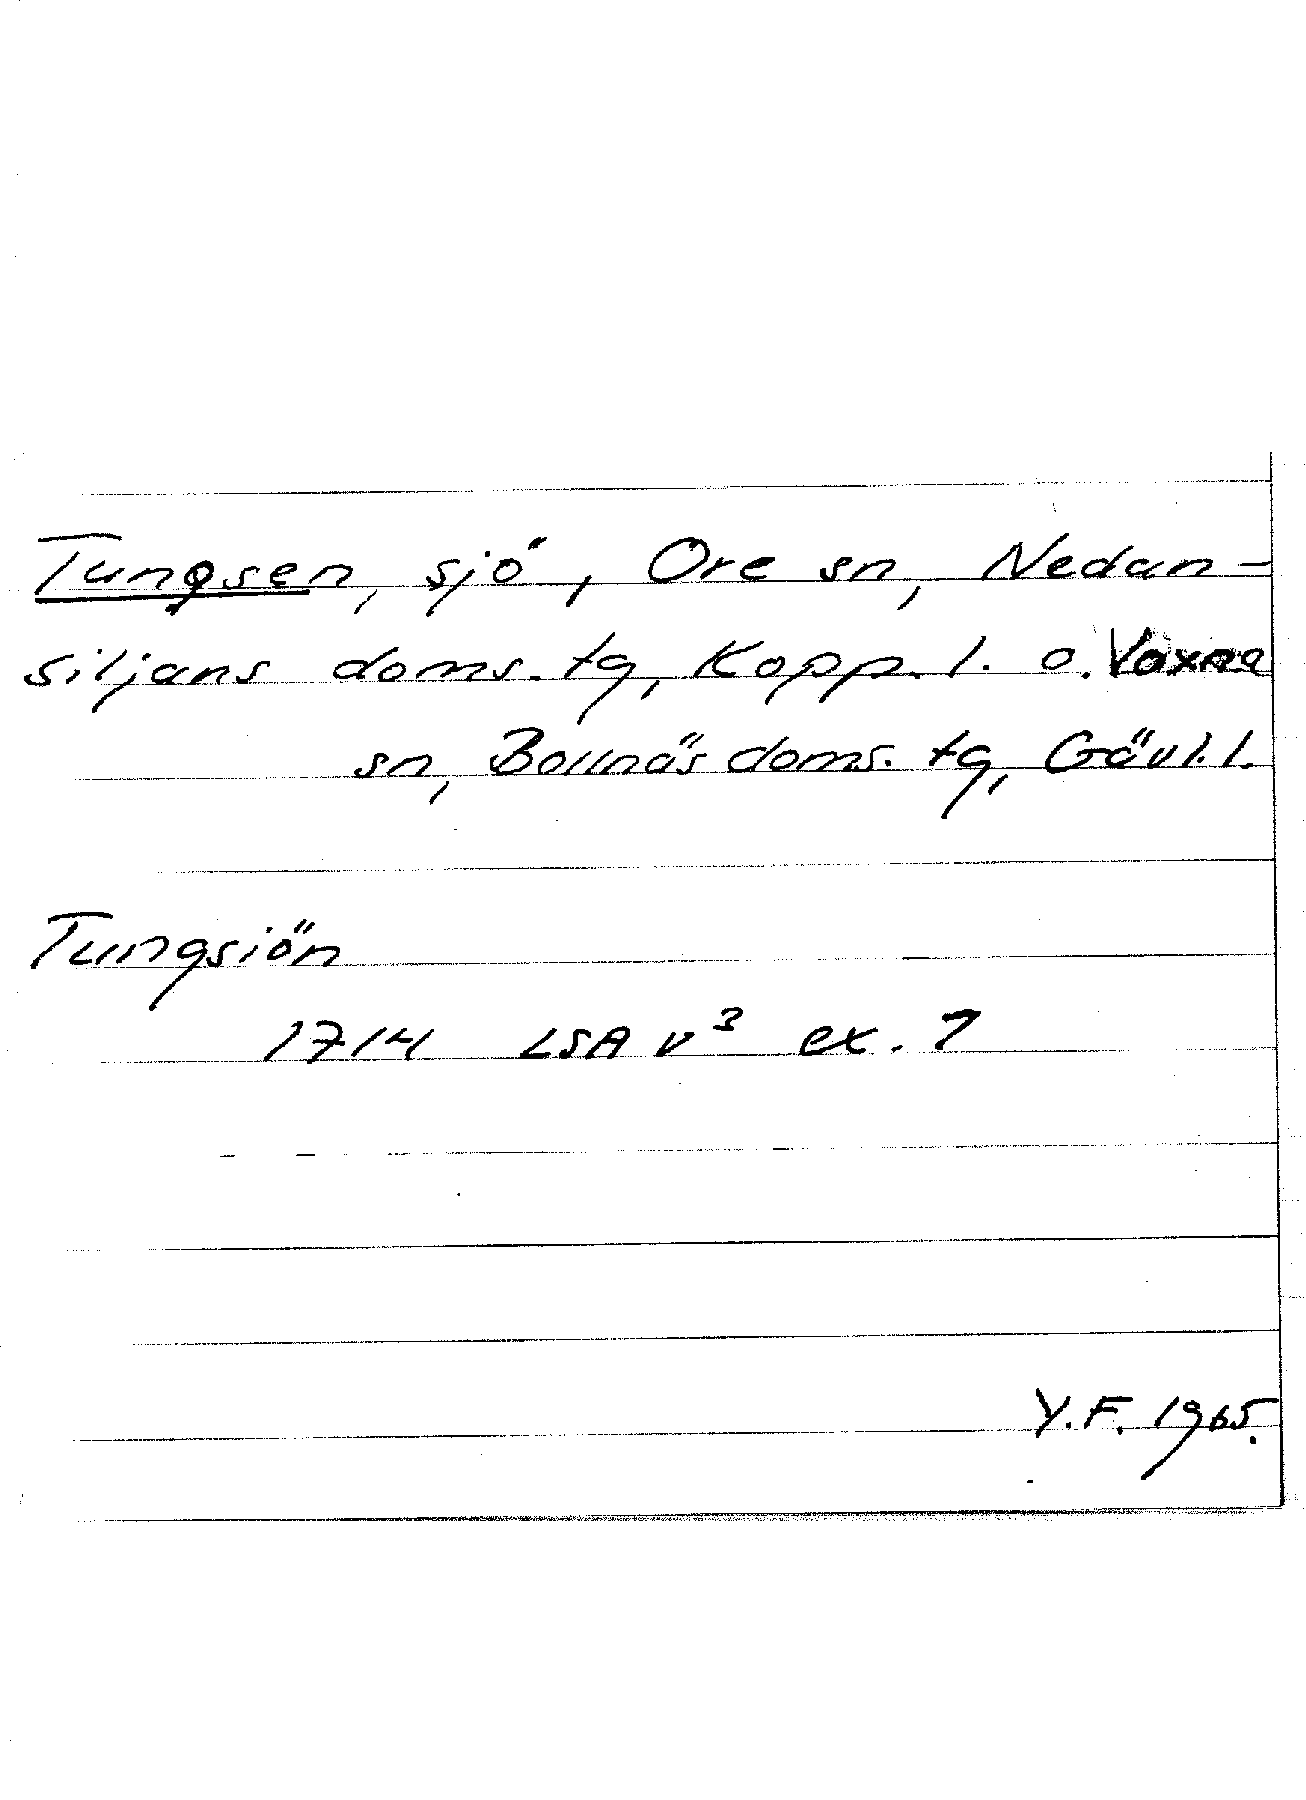 Tungsen, sjö, Ore sn, Nedan-
siljans doms. tg, Kopp. l. o. Voxna
sn, Bollnäs doms. tg, Gävl. l.
Tungsiön
1714 LSA v³ ex. 7
Y.F. 1965.